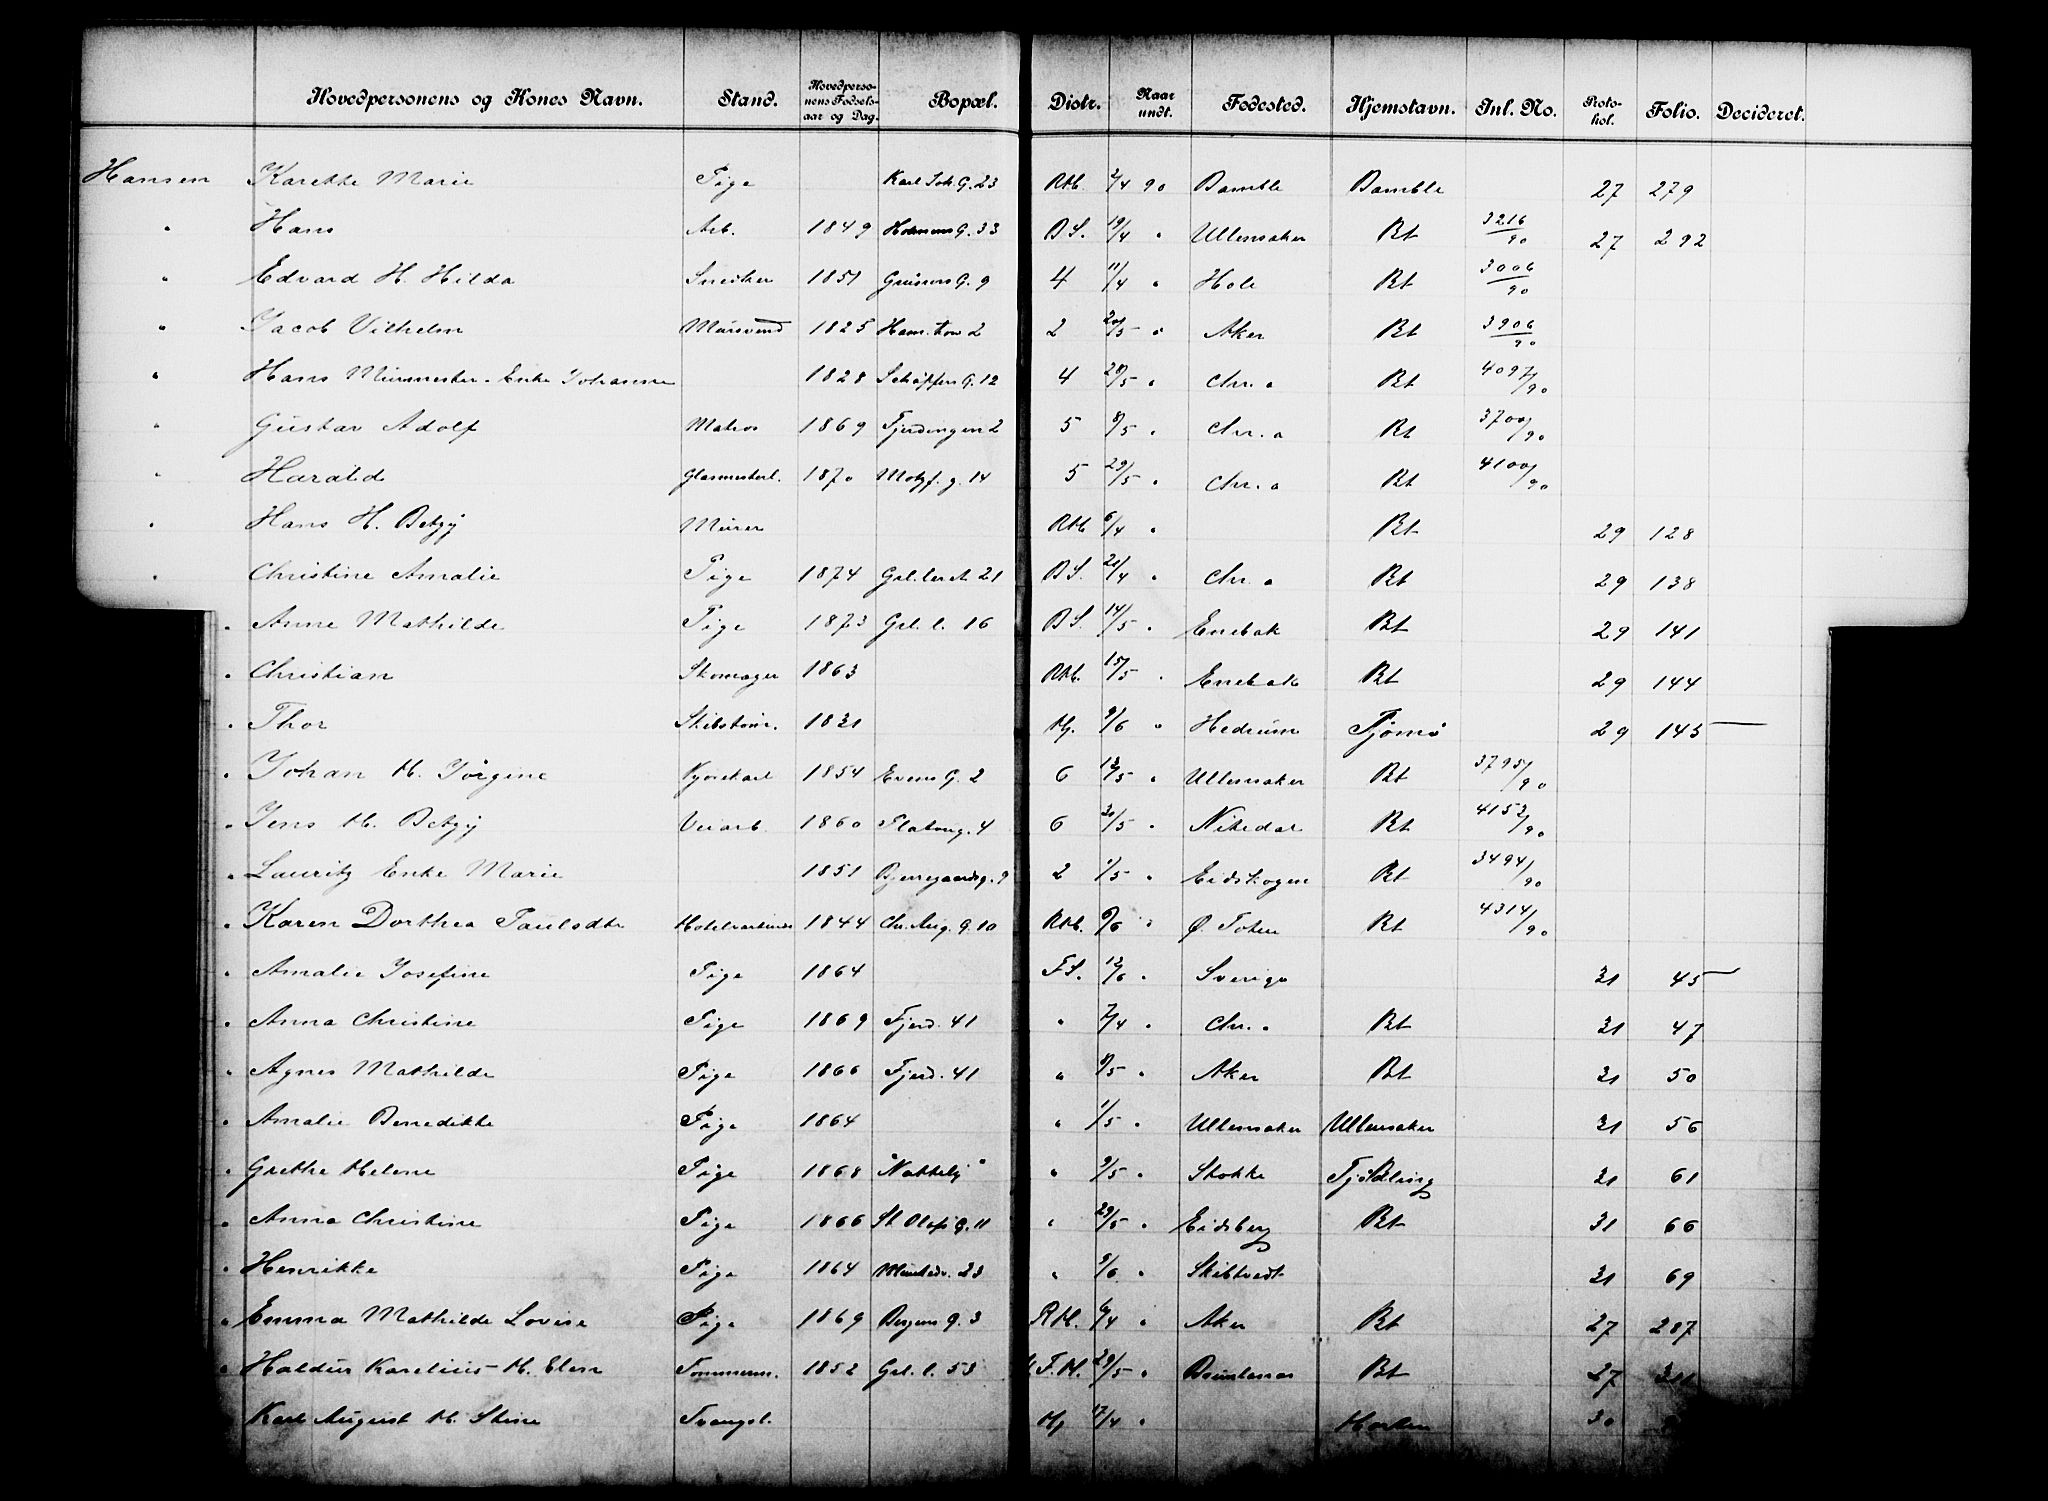 Hovedpersonens og Kones Navn. Stand. Hovedpersonens Fødselsaar og Dag. Bopæl. Distr. Naar undt. Fødested. Hjemstavn. Inl. No. Protokol. Folio. Decideret.
Hansen Karethe Marie Pige Karl Joh. G. 23 RM. 2/4 90 Bamble Bamble 27 279
" Hans Arb. 1849 Holmens G. 33 BS. 19/4 " Ullensaker Bt 3216/90 27 292
" Edvard H. Hilda Snedker 1851 G. 9 4 11/4 " Hole Bt 3006/90
" Jacob Vilhelm Mursvend 1825 2 2 20/5 " Aker Bt 3906/90
" Hans Murmester. Enke Johanne 1828 G. 12 4 28/5 " Chr.a Bt 4097/90
" Gustav Adolf Matros 1869 Fjerdingen 2 5 8/5 " Chr.a Bt 3700/90
" Harald Glasmesterl. 1870 Motzf. g. 14 5 29/5 " Chr.a Bt 4100/90
" Hans H. Betzy Murer RM 6/4 " Bt 29 128
" Christine Amalie Pige 1874 Grl.leret 21 BS. 21/4 " Chr.a Bt 29 138
" Anne Mathilde Pige 1873 Grl. l. 16 BS. 14/5 " Enebak Bt 29 141
" Christian Skomager 1863 RM. 15/5 " Enebak Bt 29 144
" Thor 1831 Hj. 9/6 " Hedrum Tjømø 29 145 —
" Johan H. Jørgine Kjørekarl 1854 Evens G. 2 6 12/5 " Ullensaker Bt 3795/90
" Jens H. Betzy Veiarb 1860 Platoug. 4 6 31/5 " Nitedal Bt 4152/90
" Lauritz Enke Marie 1851 Bjerregaardsg. 9 2 1/5 " Eidskogen Bt 3494/90
" Karen Dorthea Paulsdtr 1844 Chr. Aug. G. 10 RM. 6/6 " Ø. Toten Bt 4314/90
" Amalie Josefine Pige 1864 FS. 12/6 " Sverige 31 45 —
" Anna Christine Pige 1869 Fjerd. 41 " 7/4 " Chr.a Bt 31 47
" Agnes Mathilde Pige 1866 Fjerd. 41 " 8/5 " Aker Bt 31 50
" Amalie Benedikte Pige 1864 " 1/5 " Ullensaker Ullensaker 31 56
" Grethe Helene Pige 1868 " 9/5 " Stokke Tjølling 31 61
" Anna Christine Pige 1866 St Olafs G. 11 " 29/5 " Eidsberg Bt 31 66
" Henrikke Pige 1864 Munkedv. 23 " 9/6 " Skibtvedt 31 69
" Emma Mathilde Lovise Pige 1869 Bergens G. 3 RM. 6/4 " Aker Bt 27 287
" Haldur Karelius H. Elen Tømmerm. 1852 Grl. l. 53 F.H. 29/5 " Brunlanes Bt 27 311
Karl August H. Stine Hj 17/4 " Horten 30